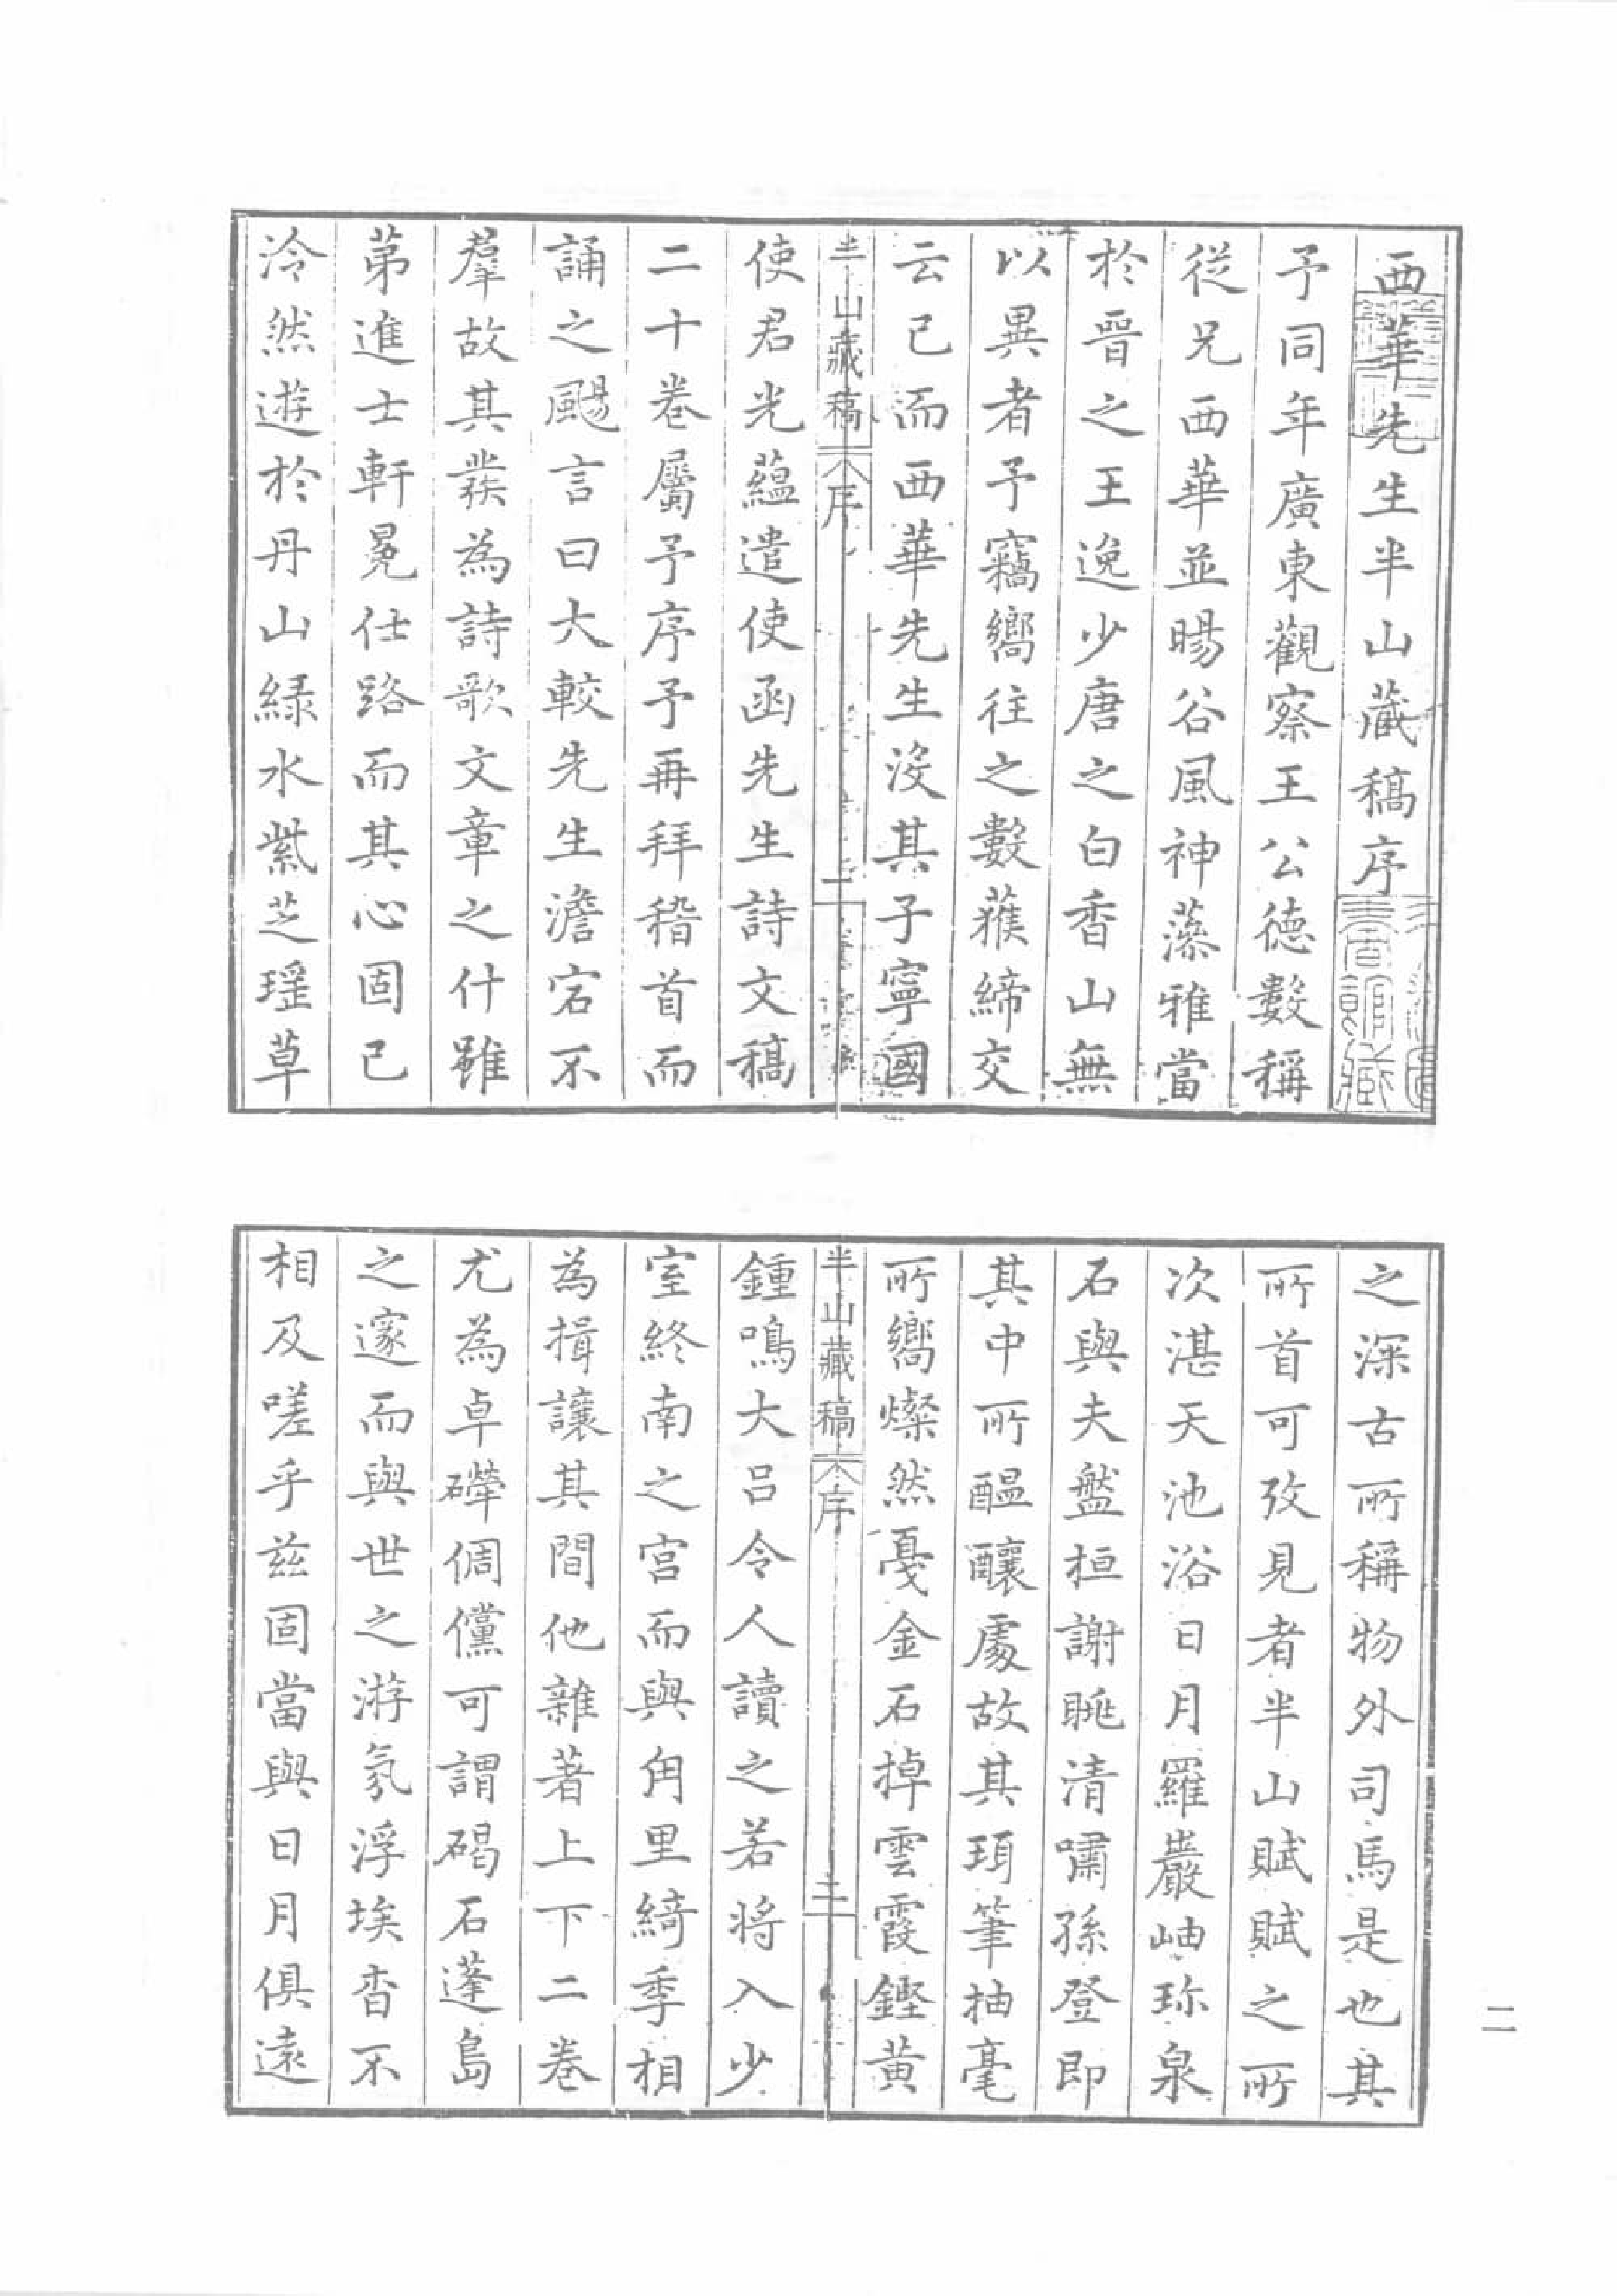 西華先生半山藏稿序
予同年廣東觀察王公德數稱
從兄西華並暘谷風神藻雅當
於晉之王逸少唐之白香山無
以異者予竊嚮往之數獲締交
云已而西華先生沒其子寧國
半山藏稿
序
一
使君光蘊遣使函先生詩文稿
二十卷屬予序予再拜稽首而
誦之颺言曰大較先生澹宕不
羣故其發為詩歌文章之什雖
第進士軒冕仕路而其心固已
泠然遊於丹山綠水紫芝瑶草
之深古所稱物外司馬是也其
所首可攷見者半山賦賦之所
次湛天池浴日月羅巖岫珎泉
石與夫盤桓謝眺清嘯孫登即
其中所醞釀處故其頊筆抽毫
所嚮燦然戞金石掉雲霞鏗黄
半山藏稿
序
二
鍾鳴大吕令人讀之若將入少
室終南之宮而與甪里綺季相
為揖讓其間他雜著上下二卷
尤為卓犖倜儻可謂碣石蓬島
之邃而與世之游氛浮埃杳不
相及嗟乎兹固當與日月俱遠
二